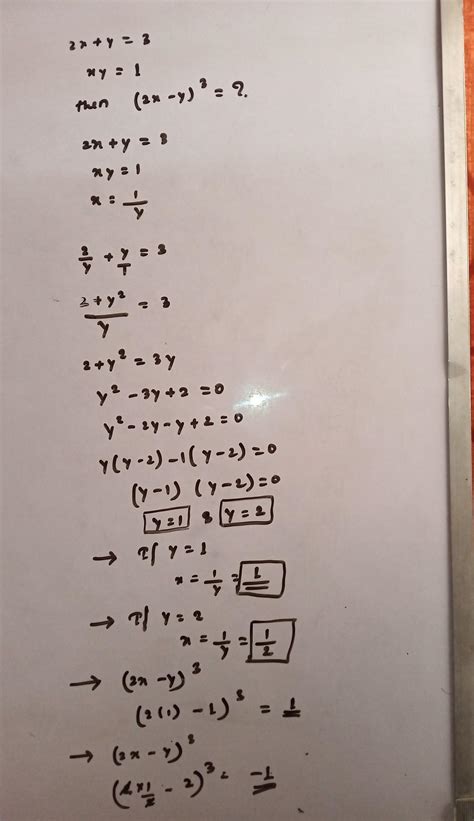 2x + y = 3
xy = 1
then (2x - y)³ = ?.
2x + y = 3
xy = 1
x = 1/y
2/y + y/1 = 3
2 + y²/y = 3
2 + y² = 3y
y² - 3y + 2 = 0
y² - 2y - y + 2 = 0
y(y - 2) - 1(y - 2) = 0
(y - 1) (y - 2) = 0
y = 1 & y = 2
→ If y = 1
x = 1/y = 1
→ If y = 2
x = 1/y = 1/2
→ (2x - y)³
(2(1) - 1)³ = 1
→ (2x - y)³
(2 × 1/2 - 2)³ = -1